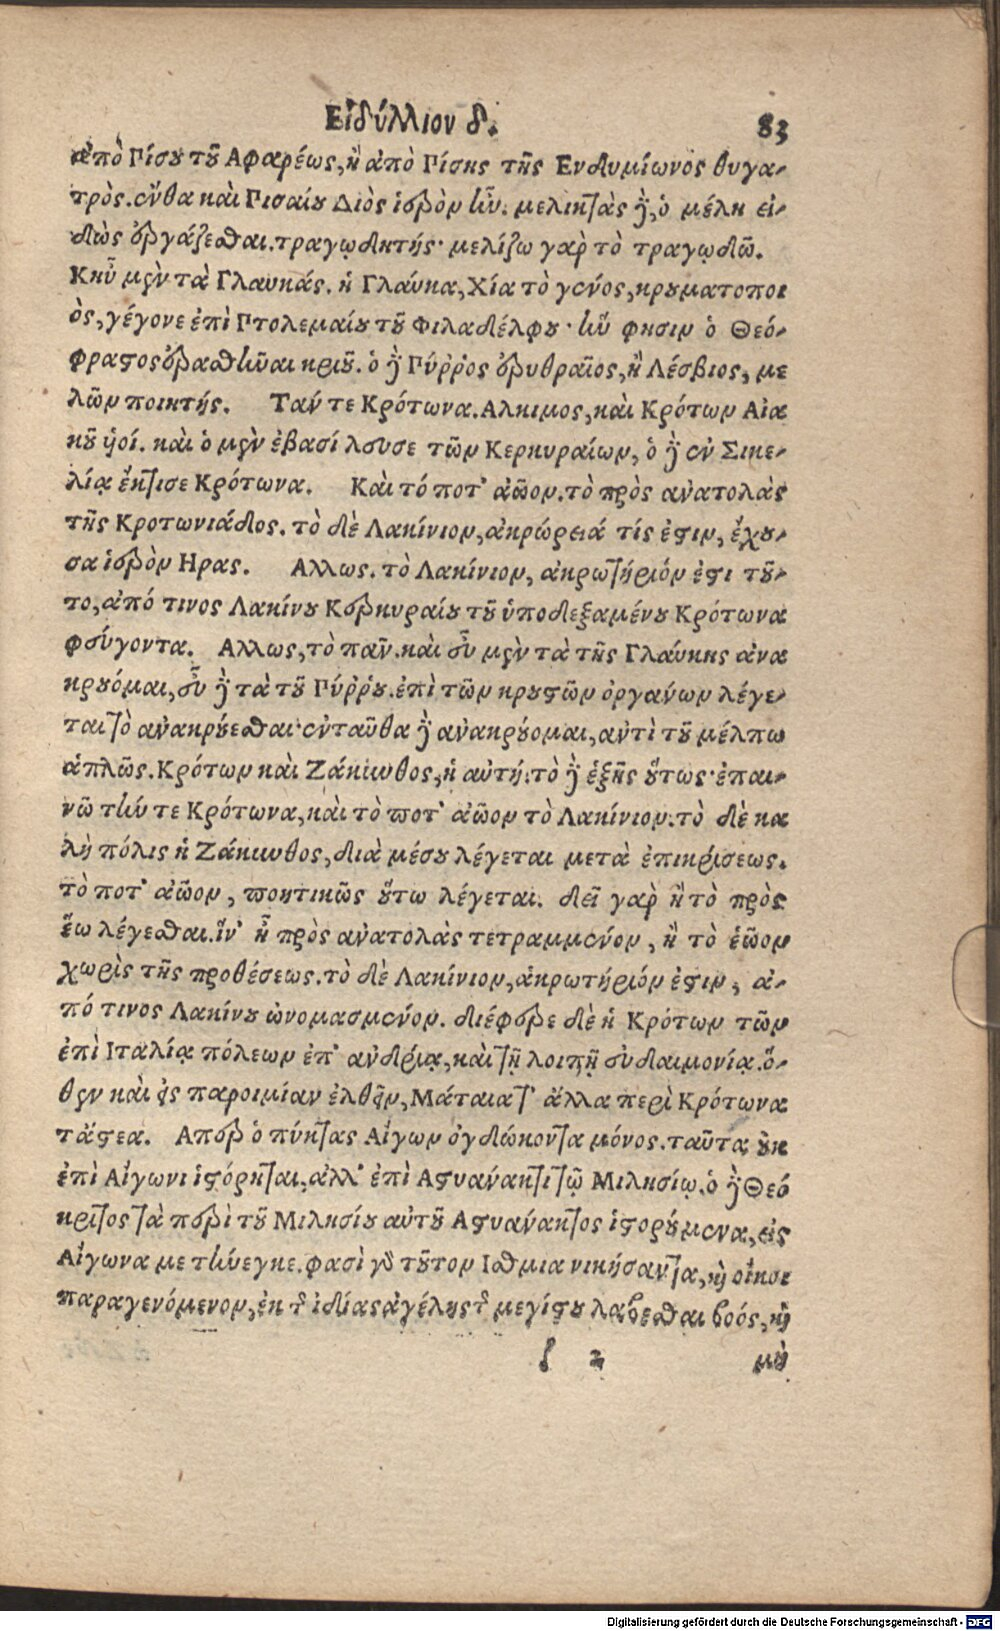 Εἰδύλλιον δ. 83
ἀπὸ Πίσου τοῦ Αφαρέως, ἢ ἀπὸ Πίσης τῆς Ενδυμίωνος θυγα-
τρὸς. ἔνθα καὶ Πισαίου Διὸς ἱερὸν ἦν. μελικτὰς δὲ, ὁ μέλη εἰ-
δὼς ἐργάζεσθαι. τραγῳδικτής· μελίζω γαρ τὸ τραγῳδῶ.
Κηὖ μὲν τὰ Γλαυκάς. ἡ Γλαύκα, Χία τὸ γένος, κρουματοποι
ὸς, γέγονε ἐπὶ Πτολεμαίου τοῦ Φιλαδέλφου· ἣν φησιν ὁ Θεό-
φραστος ἐρασθῆναι κριοῦ. ὁ δὲ Πύῤῥος ἐρυθραῖος, ἢ Λέσβιος, με
λῶν ποιητής. Ταν τε Κρότωνα. Αλκιμος, καὶ Κρότων Αἰα
κοῦ υἱοί. καὶ ὁ μὲν ἐβασίλευσε τῶν Κερκυραίων, ὁ δὲ ἐν Σικε-
λίᾳ ἔκτισε Κρότωνα. Καὶ τό ποτ' ἀῶον. τὸ πρὸς ανατολὰς
τῆς Κροτωνιάδος. τὸ δὲ Λακίνιον, ακρώρειά τίς ἐστιν, ἔχου-
σα ἱερὸν Ηρας. Αλλως. τὸ Λακίνιον, ακρωτήριόν ἐστι τοῦ-
το, ἀπό τινος Λακίνου Κερκυραίου τοῦ ὑποδεξαμένου Κρότωνα
φεύγοντα. Αλλως, τὸ παν. καὶ εὖ μὲν τὰ τῆς Γλαύκης ανα
κρούομαι, εὖ δὲ τὰ τοῦ Πύῤῥου. ἐπὶ τῶν κρουστῶν ὀργάνων λέγε-
ται τὸ ανακρούεσθαι· ἐνταῦθα δὲ ανακρούομαι, αντὶ τοῦ μέλπω
ἁπλῶς. Κρότων καὶ Ζάκυνθος, ἡ αὐτή. τὸ δὲ ἑξῆς οὕτως· ἐπαι-
νῶ τήν τε Κρότωνα, καὶ τὸ ποτ' ἀῶον τὸ Λακίνιον. τὸ δὲ κα
λὴ πόλις ἡ Ζάκυνθος, διὰ μέσου λέγεται μετὰ ἐπικρίσεως.
τὸ ποτ' ἀῶον, ποιητικῶς οὕτω λέγεται. δεῖ γαρ ἢ τὸ πρὸς
ἕω λέγεσθαι. ἵν' ᾖ πρὸς ανατολὰς τετραμμένον, ἢ τὸ ἑῶον
χωρὶς τῆς προθέσεως. τὸ δὲ Λακίνιον, ακρωτήριόν ἐστιν, ἀ-
πό τινος Λακίνου ὠνομασμένον. διέφερε δὲ ἡ Κρότων τῶν
ἐπὶ Ιταλίᾳ πόλεων ἐπ' ανδρίᾳ, καὶ τῇ λοιπῇ εὐδαιμονίᾳ. ὅ-
θεν καὶ εἰς παροιμίαν ἐλθεῖν, Μάταια τ' ἄλλα περὶ Κρότωνα
τἄστεα. Απερ ὁ πύκτας Αἴγων ὀγδώκοντα μόνος. ταῦτα οὐκ
ἐπὶ Αἴγωνι ἱστόρηται, αλλ' ἐπὶ Αστυανακτι τῷ Μιλησίῳ. ὁ δὲ Θεό
κριτος τὰ περὶ τοῦ Μιλησίου αὐτοῦ Αστυανακτος ἱστορούμενα, εἰς
Αἴγωνα μετήνεγκε. φασὶ γὰρ τοῦτον Ισθμια νικήσαντα, καὶ οἴκοι
παραγενόμενον, ἐκ τῆς ἰδίας ἀγέλης τοῦ μεγίστου λαβέσθαι βοός, καὶ
l 2 μὴ
Digitalisierung gefördert durch die Deutsche Forschungsgemeinschaft - DFG